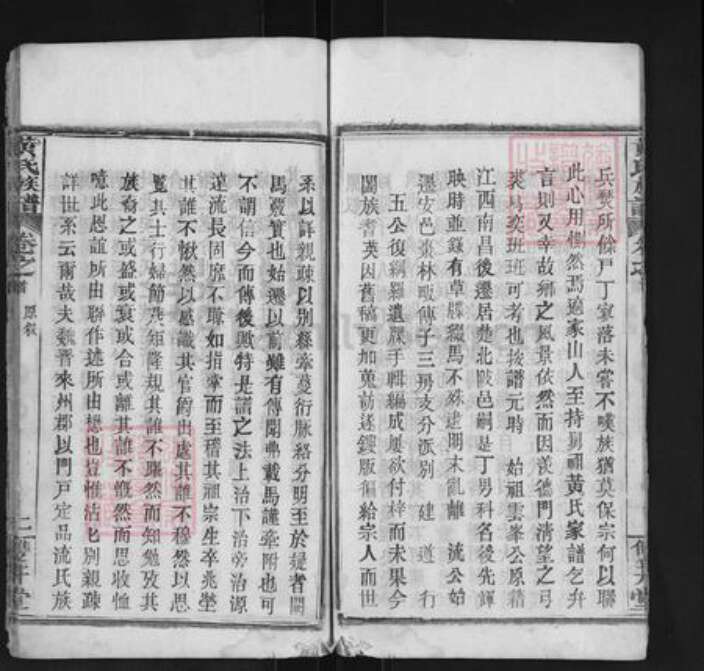 兵燹所餘戶丁寥落未嘗不嘆族猶莫保宗何以聯
此心用惻然焉適家山人至持到祠黃氏家譜乞弁
言則又幸故鄉之風景依然而因漢德門清望之弓
裘奕奕班班可考也按譜元時　始祖雲峯公原籍
江西南昌後遷居楚北陂邑嗣是丁男科名後先輝
映時並錄有草牒綴焉不殊遠明末亂離　流公始
遷安邑棗林畈傳子三房支分派別　建　道　行
五公復綱羅遺牒手輯編成屢欲付梓而未果今
闔族耆英因舊稿更加蒐訪遂鋟版徧給宗人而世
系以詳親疎以別縣牽蔓衍脈絡分明至於提者闕
焉覈實也始遷以前雖有傳聞弗載焉謹牽附也可
不謂信今而傳後歟特是譜之法上治下治旁治源
遠流長固靡不賺如指掌而至稽其祖宗生卒兆塋
其誰不愀然以感識其官爵出處其誰不穆然以思
覽其士行婦節英矩隆規其誰不躍然而知勉攷其
族裔之或盛或衰或合或離其誰不慨然而思收恤
噫此恩誼所由聯作述所由懋也豈惟沾匕別親疎
詳世系云爾哉夫魏晉來州郡以門戶定品流氏族
黃氏族譜
卷之首
原叙
二